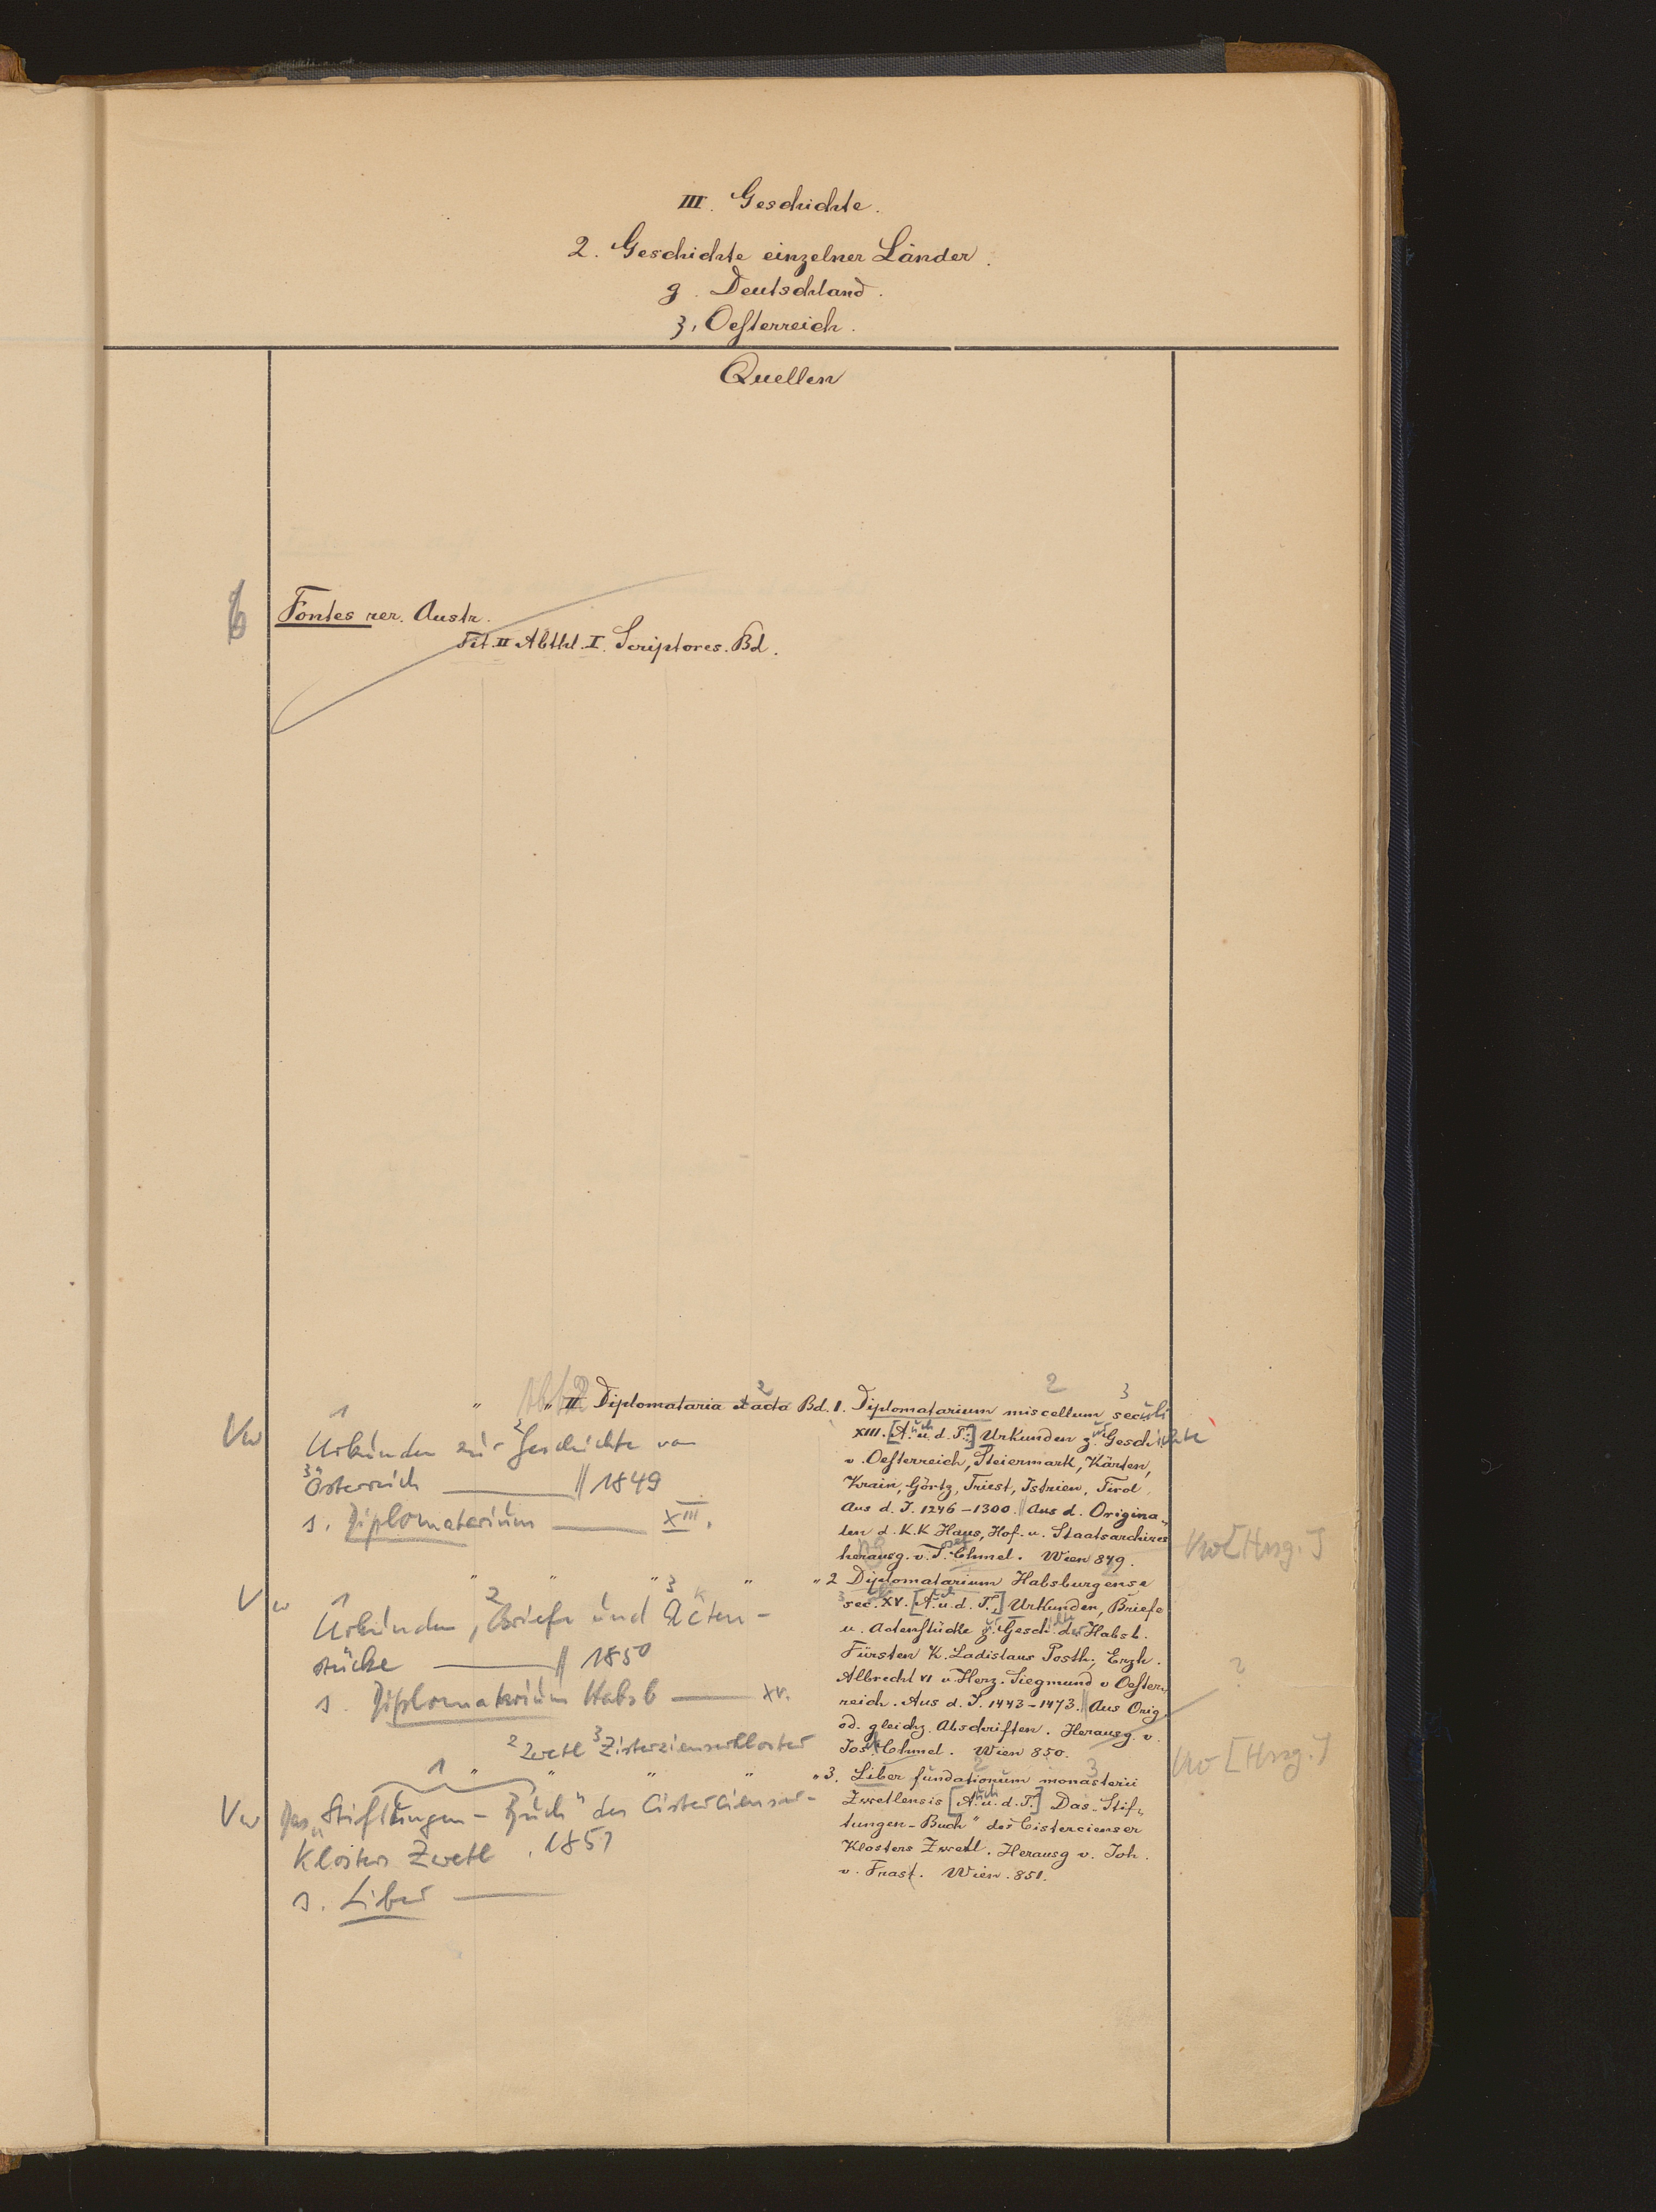 III. Geschichte.
2. Geschichte einzelner Länder.
g. Deutschland.
3. Oesterreich.
Quellen
6
Fontes rer. Austr.
Tit. II Abthl. I. Scriptores. Bd.
1 2 2 3
" " II Diplomataria et acta Bd. 1. Diplomatarium miscellum seculi
XIII. [A. u. d. T.] Urkunden z. Geschichte
v. Oesterreich, Steiermark, Kärten,
Krain, Görtz, Triest, Istrien, Tirol.
Aus d. J. 1246-1300. || Aus d. Origina„
len d. K.K Haus, Hof- u. Staatsarchives
herausg. v. Josef Chmel. Wien 849.
Vw [Hrsg.]
Vw Urkunden zur Geschichte von
Österreich || 1849
s. Diplomatarium XIII.
" " " " " 2 Diplomatarium Habsburgense
sec. XV. [A. u. d. T.] Urkunden, Briefe
u. Actenstücke z. Gesch. der Habsb.
Fürsten K. Ladislaus Posth., Erzh.
Albrecht VI u. Herz. Siegmund v Oester„
reich. Aus d. J. 1443-1473. || Aus Orig.
od. gleichz. Abschriften. Herausg. v.
Jos. Chmel. Wien 850.
?
Vw [Hrsg.]
Vw Urkunden, Briefe und Acten-
stücke || 1850
s. Diplomatarium Habsb XV.
2 Zwetl 3 Zisterzienserkloster
1 " " " " " 3. Liber fundationum monasterii
Zwetlensis [A. u. d. T.] Das „Stif„
tungen-Buch" des Cistercienser
Klosters Zwetl. Herausg v. Joh.
v. Frast. Wien. 851.
Vw Das „Stiftungen-Buch" des Cistercienser-
Klosters Zwetl. 1851
s. Liber